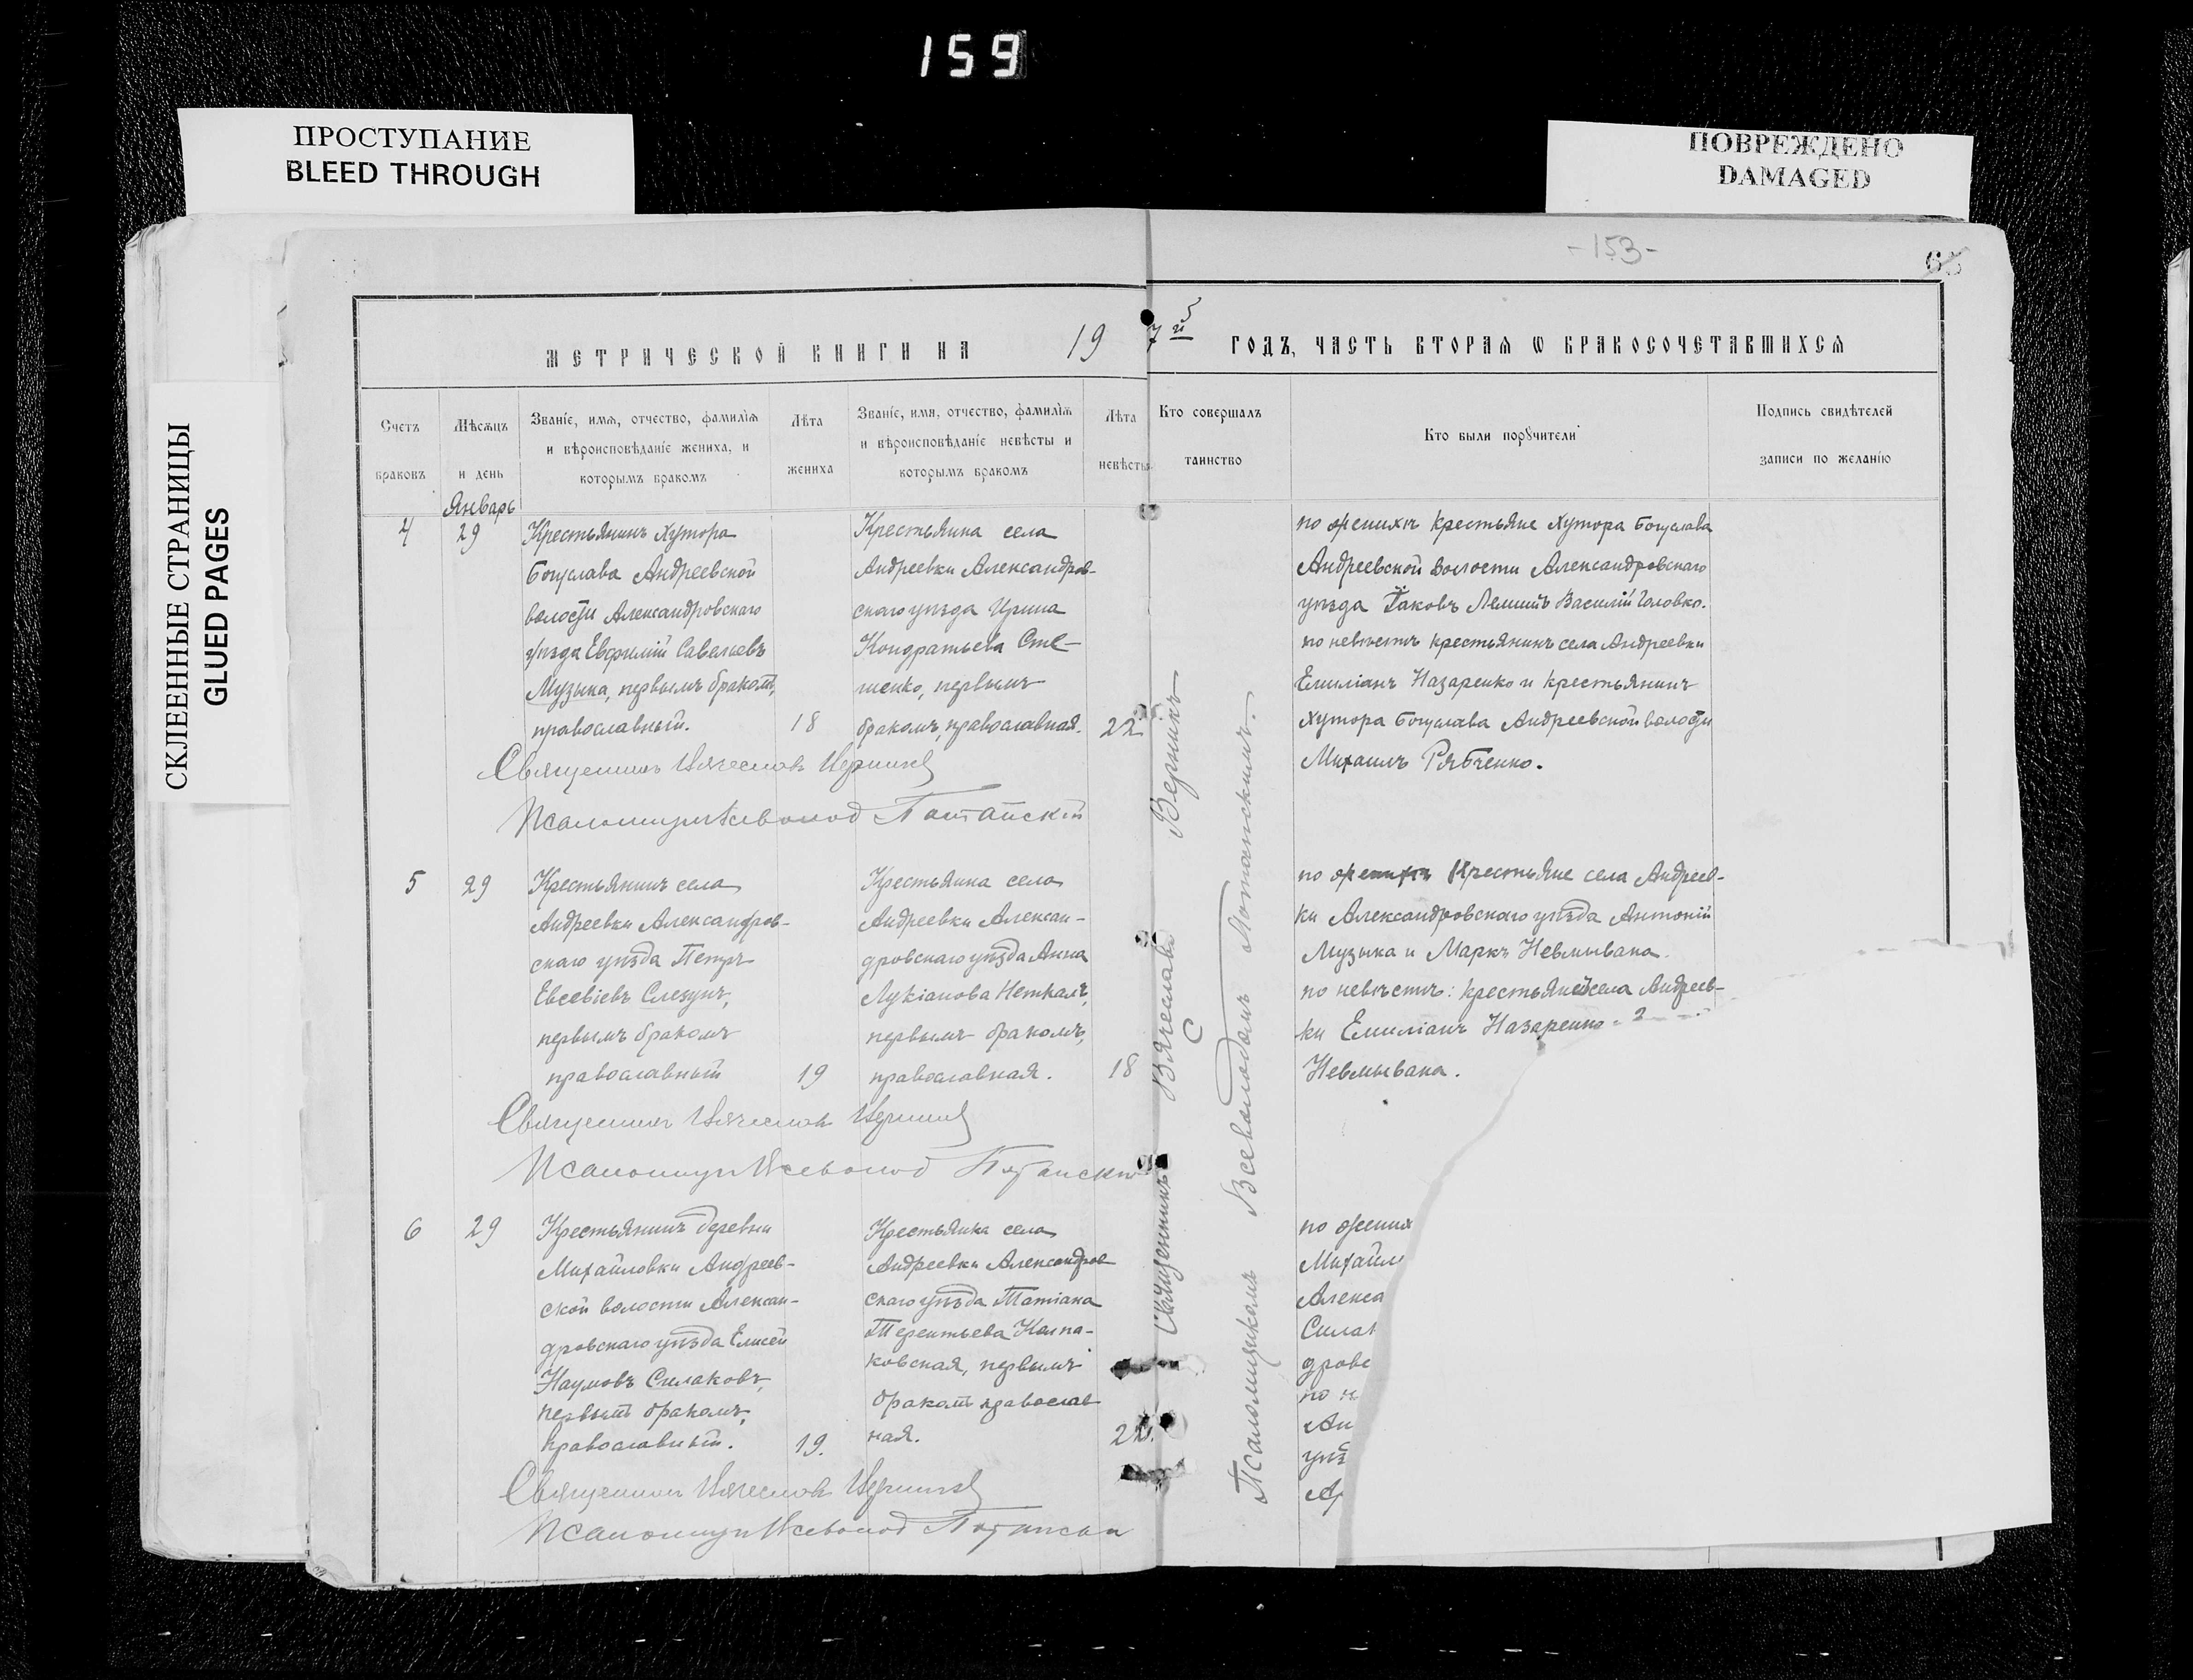 159
ПРОСТУПАНИЕ
BLEED THROUGH
ПОВРЕЖДЕНО
DAMAGED
СКЛЕЕННЫЕ СТРАНИЦЫ
GLUED PAGES
-153-
МЕТРИЧЕСКОЙ КНИГИ НА 19 7й ГОДЪ, ЧАСТЬ ВТОРАЯ Ѡ БРАКОСОЧЕТАВШИХСЯ
Счетъ браковъ
Мѣсяцъ и день
Званіе, имя, отчество, фамилія
и вѣроисповѣданіе жениха, и
которымъ бракомъ
Лѣта жениха
Званіе, имя, отчество, фамилія
и вѣроисповѣданіе невѣсты и
которымъ бракомъ
Лѣта невѣсты
Кто совершалъ таинство
Кто были поручители
Подпись свидѣтелей
записи по желанію
Январь
4
29
Крестьянинъ хутора
Богуслава Андреевской
волости Александровскаго
уѣзда Евфимій Савельевъ
Музыка, первымъ бракомъ,
православный.
18
Крестьянка села
Андреевки Александров-
скаго уѣзда Ирина
Кондратьева Сте-
ценко, первымъ
бракомъ, православная.
22
по женихѣ крестьяне хутора Богуслава
Андреевской волости Александровскаго
уѣзда Іаковъ Василій Головко.
по невѣстѣ крестьянинъ села Андреевки
Емиліанъ Назаренко и крестьянинъ
хутора Богуслава Андреевской волости
Михаилъ Рябченко.
Священникъ Вячеславъ Верникъ
Псаломщикъ Всеволод Потапскій
5
29
Крестьянинъ села
Андреевки Александров-
скаго уѣзда Петръ
Евсевіевъ Слезунъ,
первымъ бракомъ
православный
19
Крестьянка села
Андреевки Алексан-
дровскаго уѣзда Анна
Лукіанова Неткалъ,
первымъ бракомъ,
православная.
18
по женихѣ крестьяне села Андреев-
ки Александровскаго уѣзда Антоній
Музыка и Маркъ Невмывака.
по невѣстѣ: крестьяне села Андреев-
ки Емиліанъ Назаренко
Невмывака.
Священникъ Вячеславъ Верникъ
Псаломщикъ Всеволод Потапскій
6
29
Крестьянинъ деревни
Михайловки Андреев-
ской волости Алексан-
дровскаго уѣзда Елисей
Наумовъ Силаковъ,
первымъ бракомъ,
православный.
19.
Крестьянка села
Андреевки Александров
скаго уѣзда Татіана
Терентьева Колпа-
ковская, первымъ
бракомъ православ
ная.
22.
по жених
Михайл
Алекса
Сила
дровс
по н
Ан
уѣз
Ар
Священникъ Вячеславъ Верникъ
Псаломщикъ Всеволод Потапскій
Священникъ Вячеславъ Верникъ
С Псаломщикомъ Всеволодомъ Потапскимъ.